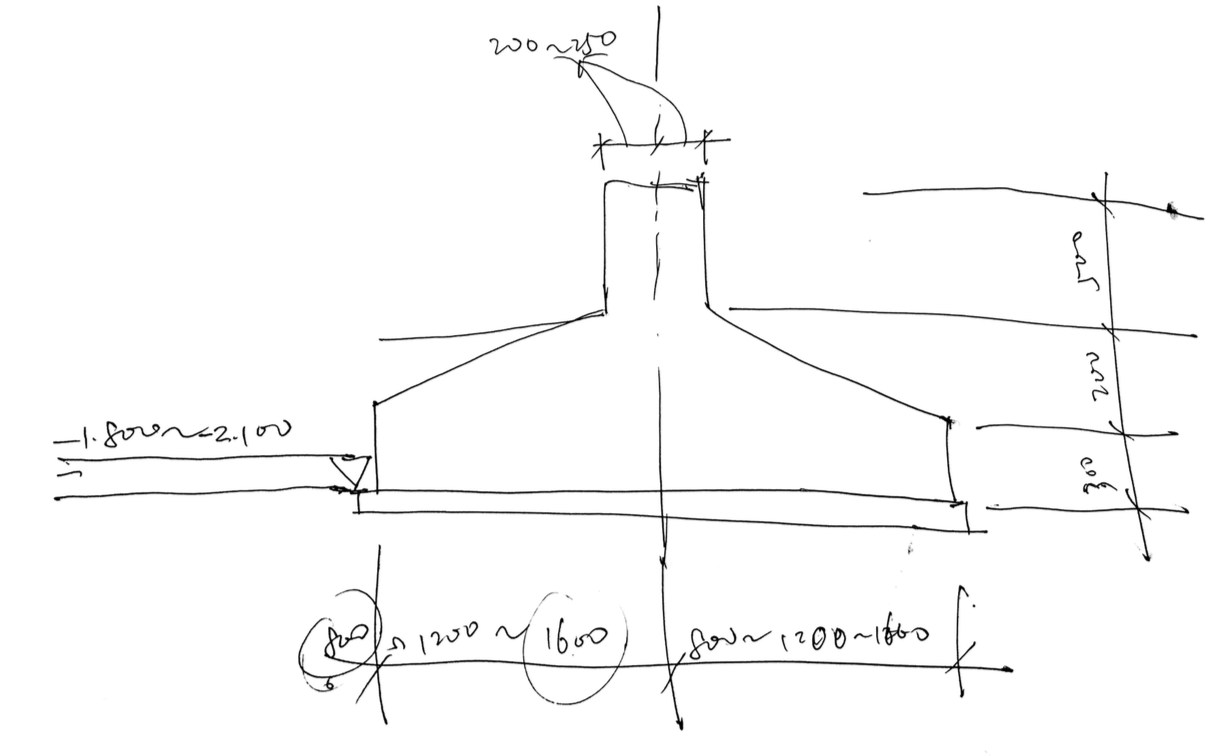 200~250
500
200
300
-1.800~-2.100
800~1200~1600
800~1200~1600